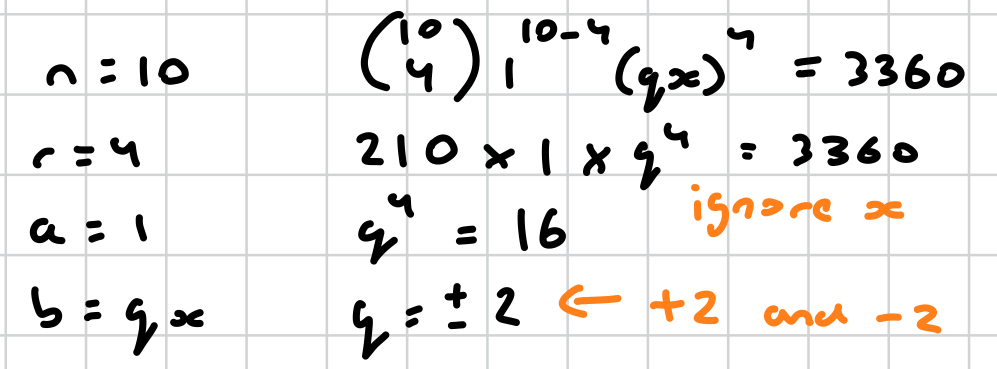 n = 10
(10 4) 1^10-4 (qx)^4 = 3360
r = 4
210 × 1 × q^4 = 3360
ignore x
a = 1
q^4 = 16
b = qx
q = ± 2 ← +2 and -2